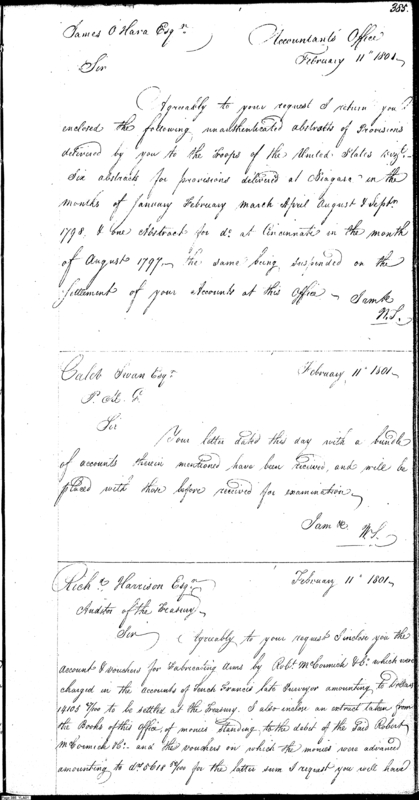 355.
James O'Hara Esqr.
Accountants Office
February 11th 1801
Sir
Agreeably to your request I return you
enclosed the following unauthenticated abstracts of Provisions
delivered by you to the Troops of the United States Vizt.
Six abstracts for provisions delivered at Niagara in the
months of January February march April August & Septr.
1798. & one Abstract for do. at Cincinnati in the month
of August 1797. the same being suspended on the
Settlement of your accounts at this Office I am &c
W.S.
Caleb Swan Esqr.
February 11th 1801
P. M. G.
Sir
Your letter dated this day with a bundle
of accounts therein mentioned have been received, and will be
placed with those before received for examination
I am &c
W.S.
Richd. Harrison Esqr.
February 11th 1801
Auditor of the Treasury
Sir
Agreeably to your request I inclose you the
Account & vouchers for Fabricating Arms by Robt. McCormick & Co. which were
charged in the accounts of Tench Francis late Purveyor amounting to Dollars
to be settled at the Treasury. I also enclose an extract taken from
the Books of this Office, of monies standing to the debit of the said Robert
McCormick & Co. and the vouchers on which the monies were advanced
amounting to drs. 5618 for the latter sum I request you will have